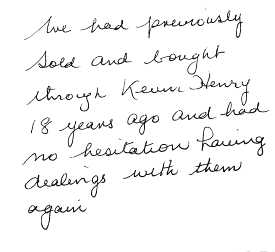 We had previously
sold and bought
through Kevin Henry
18 years ago and had
no hesitation having
dealings with them
again